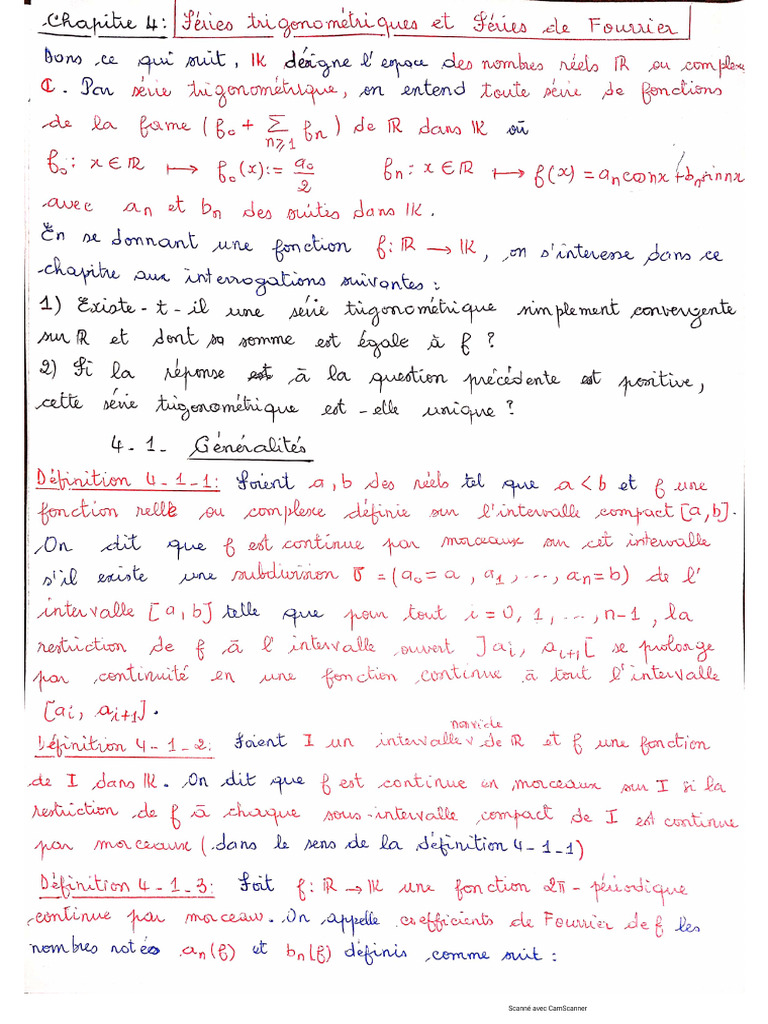 Chapitre 4: Séries trigonométriques et Séries de Fourrier
Dans ce qui suit, IK désigne l'espace des nombres réels ℝ ou complexe
ℂ. Par série trigonométrique, on entend toute série de fonctions
de la forme (f₀ + Σ_{n≥1} fₙ) de ℝ dans IK où
f₀: x ∈ ℝ ⟼ f₀(x) := a₀/2 fₙ: x ∈ ℝ ⟼ f(x) = aₙcosnx + bₙsinnx
avec aₙ et bₙ des suites dans IK.
En se donnant une fonction f: ℝ → IK, on s'interesse dans ce
chapitre aux interrogations suivantes :
1) Existe-t-il une série trigonométrique simplement convergente
sur ℝ et dont sa somme est égale à f ?
2) Si la réponse à la question précédente est positive,
cette série trigonométrique est-elle unique ?
4-1- Généralités
Définition 4-1-1: Soient a, b des réels tel que a < b et f une
fonction relle ou complexe définie sur l'intervalle compact [a,b].
On dit que f est continue par morceaux sur cet intervalle
s'il existe une subdivision σ = (a₀=a, a₁, ..., aₙ=b) de l'
intervalle [a,b] telle que pour tout i = 0, 1, ..., n-1, la
restriction de f à l'intervalle ouvert ]aᵢ, aᵢ₊₁[ se prolonge
par continuité en une fonction continue à tout l'intervalle
[aᵢ, aᵢ₊₁].
non vide
Définition 4-1-2: Soient I un intervalle v de ℝ et f une fonction
de I dans IK. On dit que f est continue en morceaux sur I si la
restriction de f à chaque sous-intervalle compact de I est continue
par morceaux (dans le sens de la définition 4-1-1)
Définition 4-1-3: Soit f: ℝ → IK une fonction 2π-périodique
continue par morceau. On appelle coefficients de Fourrier de f les
nombres notés aₙ(f) et bₙ(f) définis comme suit :
Scanné avec CamScanner